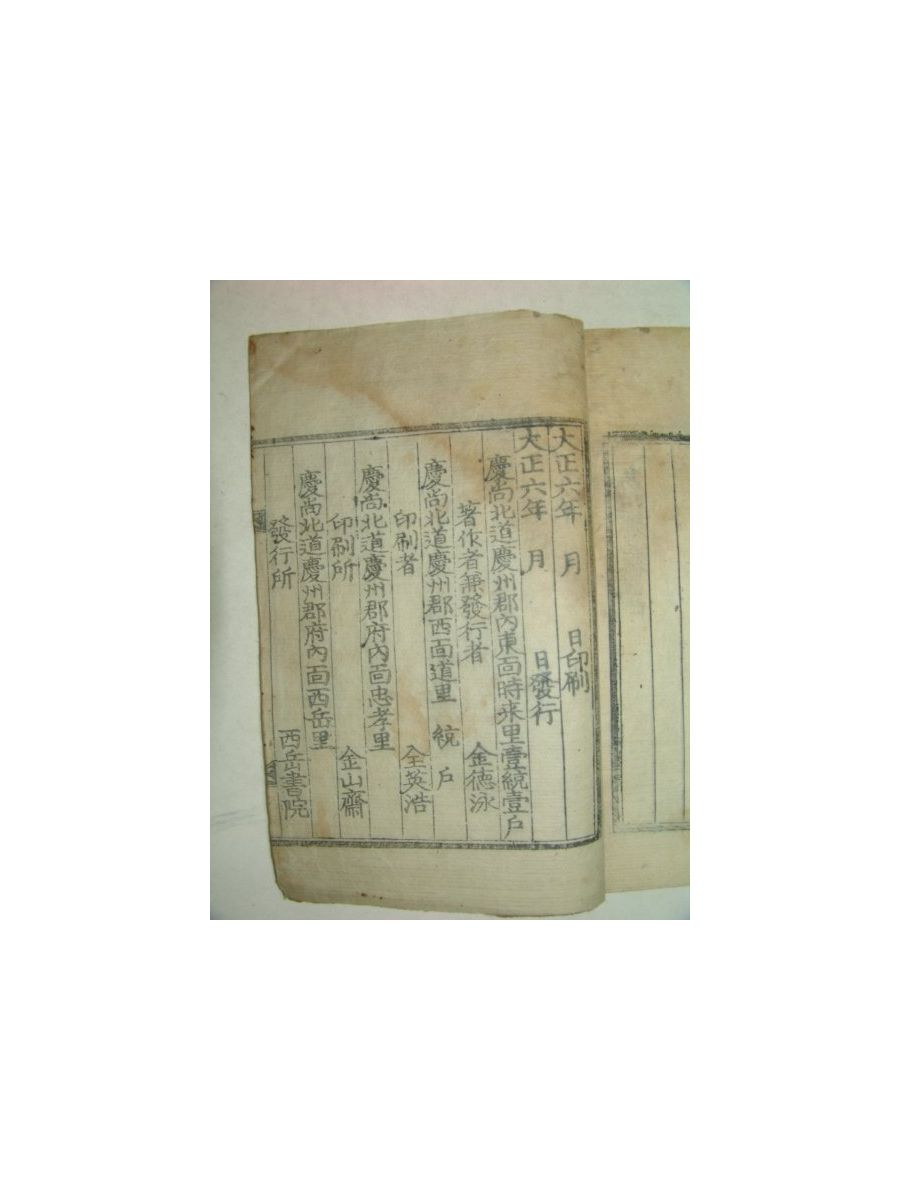 大正六年　月　日印刷
大正六年　月　日發行
慶尚北道慶州郡內東面時來里壹統壹戶
著作者兼發行者　金德泳
慶尚北道慶州郡西面道里　統　戶
印刷者　全英浩
慶尚北道慶州郡府內面忠孝里
印刷所　金山齋
慶尚北道慶州郡府內面西岳里
發行所　西岳書院